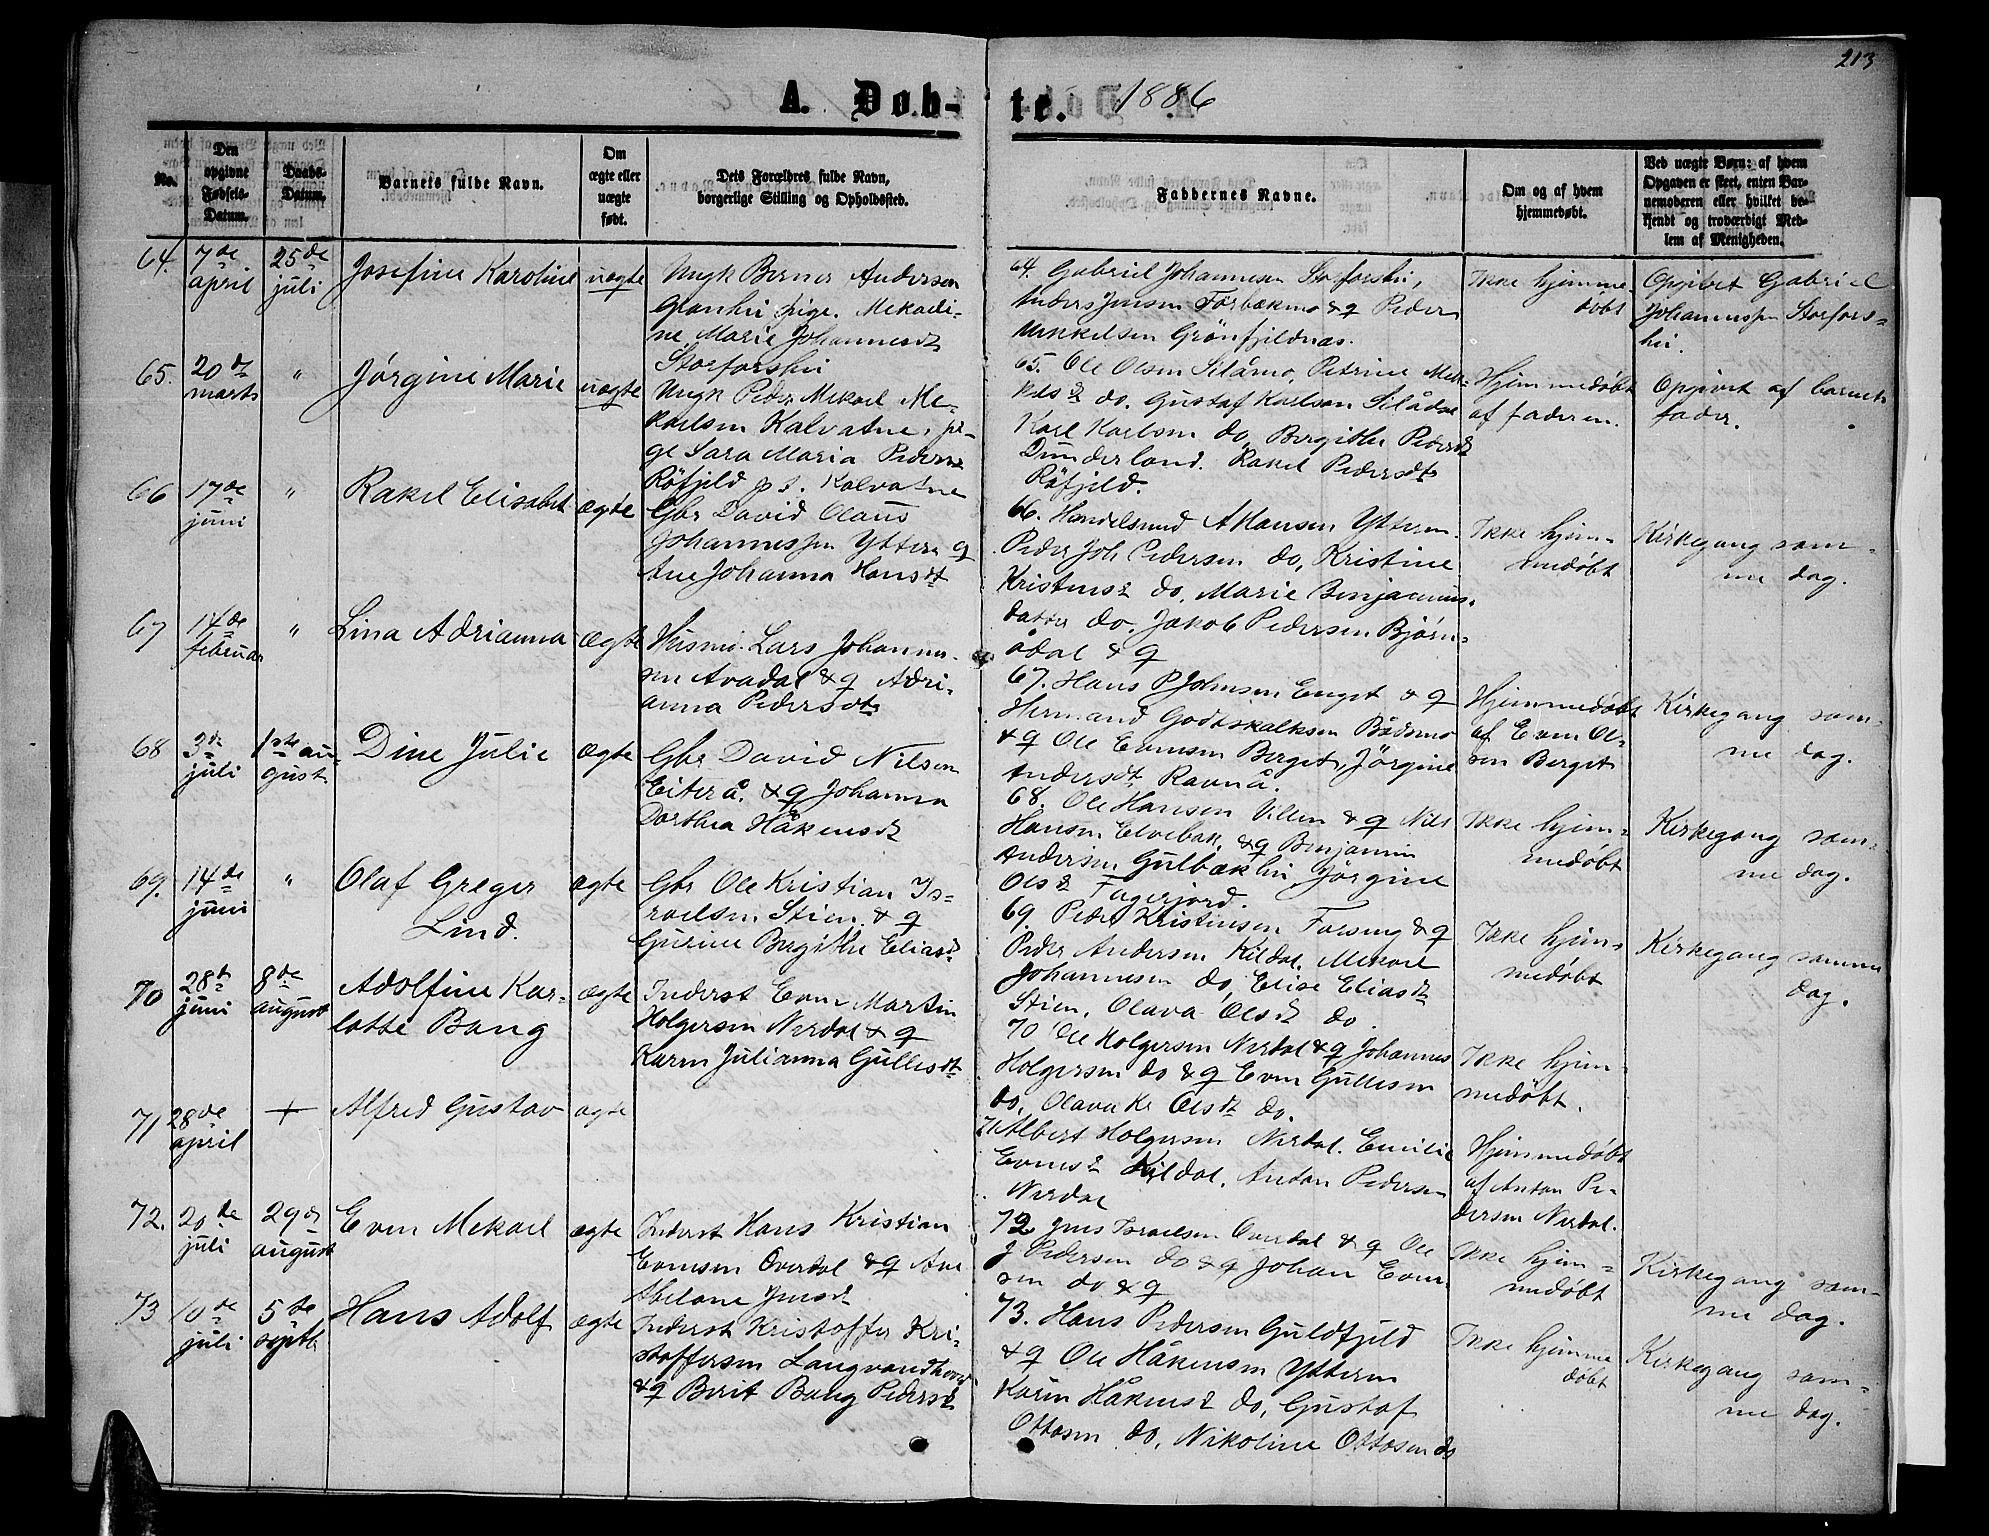 213
A. Døb-
te. 1886
No.
Den opgivne Fødsels-Datum.
Daabs-Datum.
Barnets fulde Navn.
Om ægte eller uægte født.
Dets Forældres fulde Navn, borgerlige Stilling og Opholdssted.
Faddernes Navne.
Om og af hvem hjemmedøbt.
Ved uægte Børn: af hvem Opgaven er skeet, enten Barnemoderen eller hvilket bekjendt og troværdigt Medlem af Menigheden.
64.
7de
april
25de
juli
Josefine Karoline
uægte
Ungk Berner Andersen
Granhei pige. Mekadi-
ne Marie Johannesdt
Storforshei
64. Gabriel Johannesen Storforshei,
Anders Jensen Forbækmo & q Peder
Mikkelsen Grönfjeldnæs.
Ikke hjemme-
døbt
Opgivet Gabriel
Johannessen Storfors-
hei.
65.
20de
marts
"
Jørgine Marie
uægte
Ungk Peder Mekael Me-
kaelsen Kalvatne, pi-
ge Sara Maria Peders
Röfjeld p. t. Kalvatne
65. Ole Olsen Silåmo, Petrine Mek-
kelsd do. Gustaf Karlsen Silådal
Karl Karlsen do, Bergithe Pedersd
Dunderland. Rakel Pedersdt
Röfjeld.
Hjemmedøbt
af faderen.
Opgivet af barnets
fader.
66
17de
juni
"
Rakel Elisabet
ægte
Gbr David Olaus
Johannessen Yttern q
Ane Johanna Hansdt
66. Handelsmd A Hansen Ytteren.
Peder Joh Pedersen do, Kristine
Kristensd do, Marie Benjamins-
datter do, Jakob Pedersen Bjørn-
ådal & q
Ikke hjem-
medøbt
Kirkegang sam-
me dag.
67
14de
februar
"
Lina Adrianna
ægte
Husmd. Lars Johanne-
sen Avadal & q Adri-
anna Pedersdtr
67. Hans P Johnsen Enget & q
Hermand Godtskalksen Bådsmo
& q Ole Evensen Berget, Jörgine
Andersdt, Ravnå.
Hjemmedøbt
af Even Ol-
sen Berget
Kirkegang sam-
me dag.
68
3de
juli
1ste au-
gust
Dine Julie
ægte
Gbr David Nilsen
Eiterå, & q Johanna
Dorthea Håkensd
68. Ole Hansen Villen & q Nils
Hansen Elvebak, & q Benjamin
Andersen Gulbækhei Jörgine
Olsd Fagerjord.
Ikke hjem-
medøbt
Kirkegang sam-
me dag.
69.
14de
juni
"
Olaf Greger
Lind.
ægte
Gbr Ole Kristian Is-
raelsen Stien & q
Gurine Bergithe Eliasd
69. Peder Kristensen Forsmo & q
Peder Andersen Kildal, Mekael
Johannesen do, Elise Eliasdt
Stien, Olava Olsdt do.
Ikke hjem-
medøbt
Kirkegang samme
dag.
70
28de
juni
8de
august
Adolfine Kar-
lotte Bang
ægte
Inderst Even Martin
Holgersen Nerdal & q
Karen Julianna Gullesdt
70 Ole Holgersen Nerdal & q Johannes
Holgersen do & q Even Gullesen
do, Olava Kr Olsdt do.
Ikke hjem-
medøbt.
71
28de
april
+
Alfred Gustav
ægte
71 Albert Holgersen Nerdal. Emilie
Evensd Kildal, Anton Pedersen
Nerdal
Hjemmedøbt
af Anton Pe-
dersen Nerdal.
72.
20de
juli
29de
august
Even Mekael
ægte
Inderst Hans Kristian
Evensen Överdal & q Ane
Abelone Jensdt
72 Jens Israelsen Överdal & q Ole
J Pedersen do & q Johan Even-
sen do & q
Ikke hjem-
medøbt
Kirkegang sam-
me dag.
73
10de
juli
5te
septb
Hans Adolf
ægte
Inderst Kristoffer Kri-
stoffersen Langvandhoved
& q Berit Bang Pedersd
73. Hans Pedersen Guldfjeld
& q Ole Håkensen Ytteren
Karin Håkensd do, Gustaf
Ottosen do, Nikoline Ottosen do
Ikke hjemme
døbt
Kirkegang sam-
me dag.